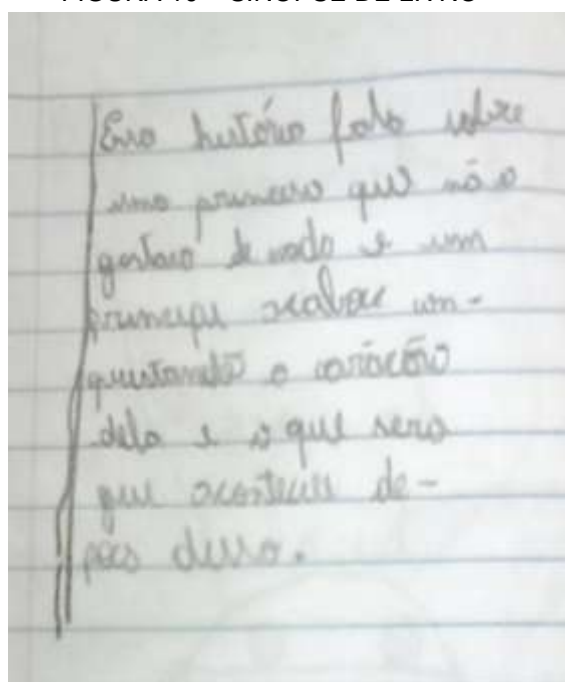 Essa história fala sobre
uma princesa que não
gostava de nada e um
principe acabou con-
quistando o coração
dela e o que será
que aconteceu de-
pois disso.